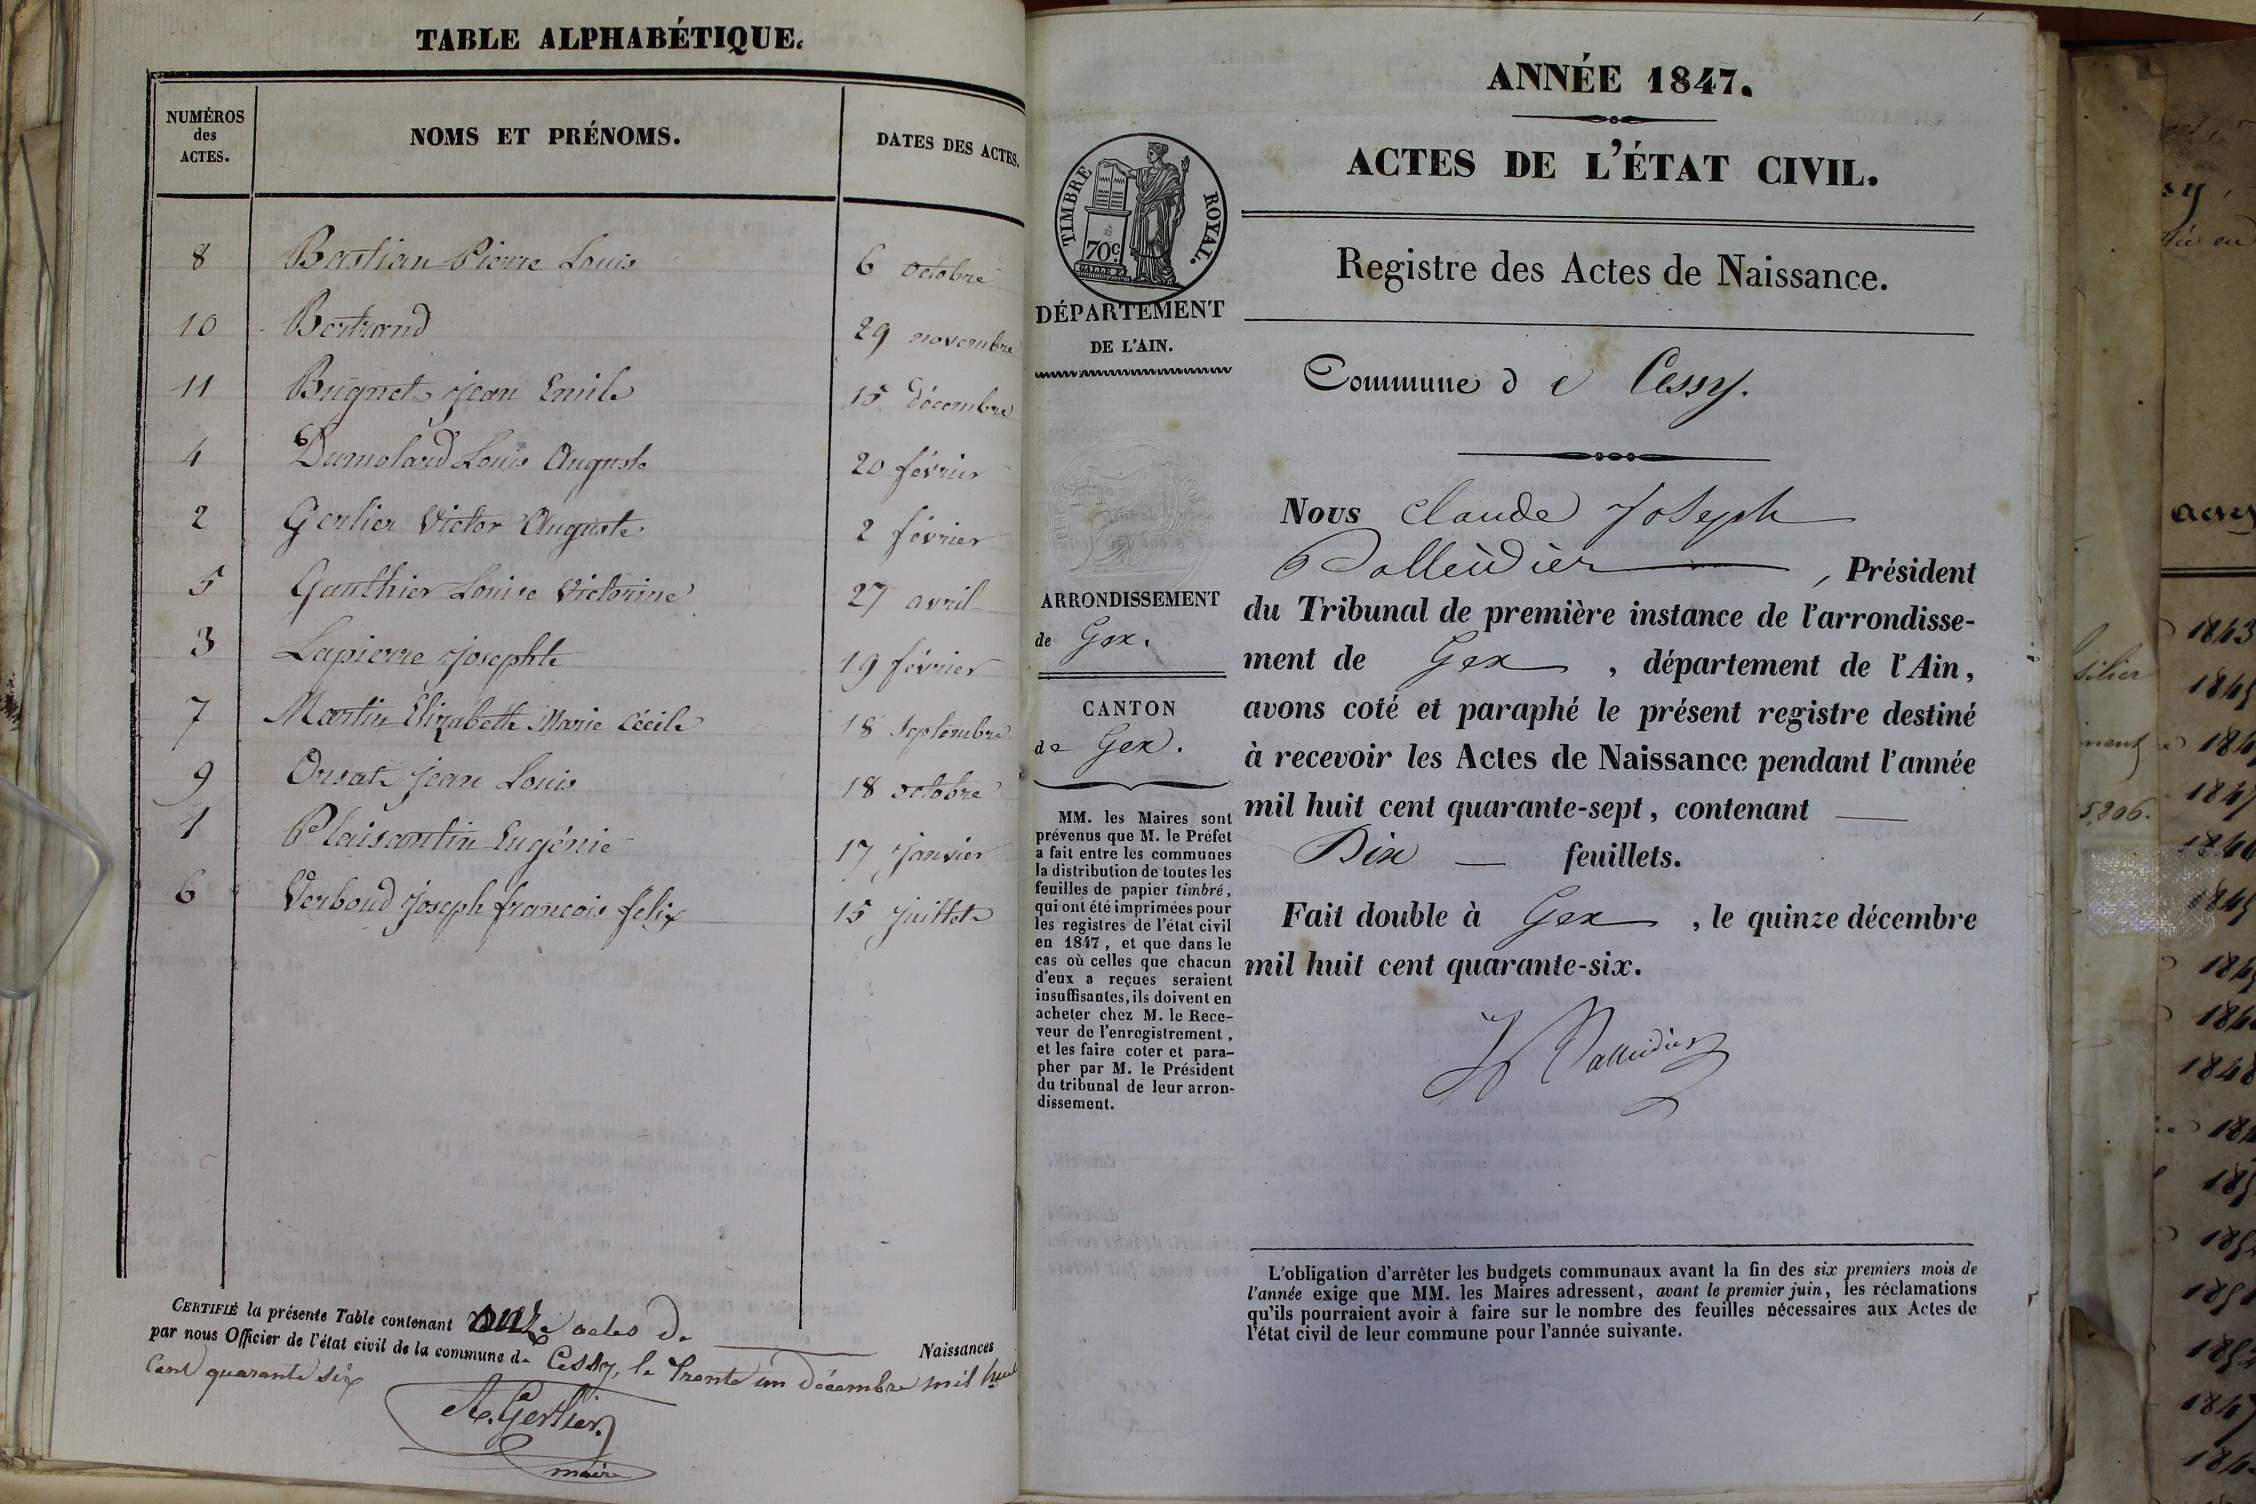 TABLE ALPHABÉTIQUE.
NUMÉROS
des
ACTES.
NOMS ET PRÉNOMS.
DATES DES ACTES.
8 Bastian Pierre Louis 6 octobre
10 Bertrand 29 novembre
11 Bugnet Jean Emile 15 décembre
4 Dumolard Louis Auguste 20 février
2 Gerlier Victor Auguste 2 février
5 Gauthier Louise Victorine 27 avril
3 Lapierre Josephte 19 février
7 Martin Elizabeth Marie Cécile 18 septembre
9 Orsat Jean Louis 18 octobre
1 Plaisantin Eugénie 17 Janvier
6 Verboud Joseph françois felix 15 Juillet
CERTIFIÉ la présente Table contenant onze actes de Naissances
par nous Officier de l'état civil de la commune de Cessy, le Trente un Décembre mil huit
Cent quarante six
A. Gerlier
maire
ANNÉE 1847.
ACTES DE L'ÉTAT CIVIL.
TIMBRE ROYAL.
70c
Registre des Actes de Naissance.
DÉPARTEMENT
DE L'AIN.
Commune de Cessy.
ARRONDISSEMENT
de Gex.
CANTON
de Gex.
MM. les Maires sont
prévenus que M. le Préfet
a fait entre les communes
la distribution de toutes les
feuilles de papier timbré,
qui ont été imprimées pour
les registres de l'état civil
en 1847, et que dans le
cas où celles que chacun
d'eux a reçues seraient
insuffisantes, ils doivent en
acheter chez M. le Rece-
veur de l'enregistrement,
et les faire coter et para-
pher par M. le Président
du tribunal de leur arron-
dissement.
Nous Claude Joseph
Balleidier, Président
du Tribunal de première instance de l'arrondisse-
ment de Gex, département de l'Ain,
avons coté et paraphé le présent registre destiné
à recevoir les Actes de Naissance pendant l'année
mil huit cent quarante-sept, contenant
Dix feuillets.
Fait double à Gex, le quinze décembre
mil huit cent quarante-six.
Balleidier
L'obligation d'arrêter les budgets communaux avant la fin des six premiers mois de
l'année exige que MM. les Maires adressent, avant le premier juin, les réclamations
qu'ils pourraient avoir à faire sur le nombre des feuilles nécessaires aux Actes de
l'état civil de leur commune pour l'année suivante.
1843